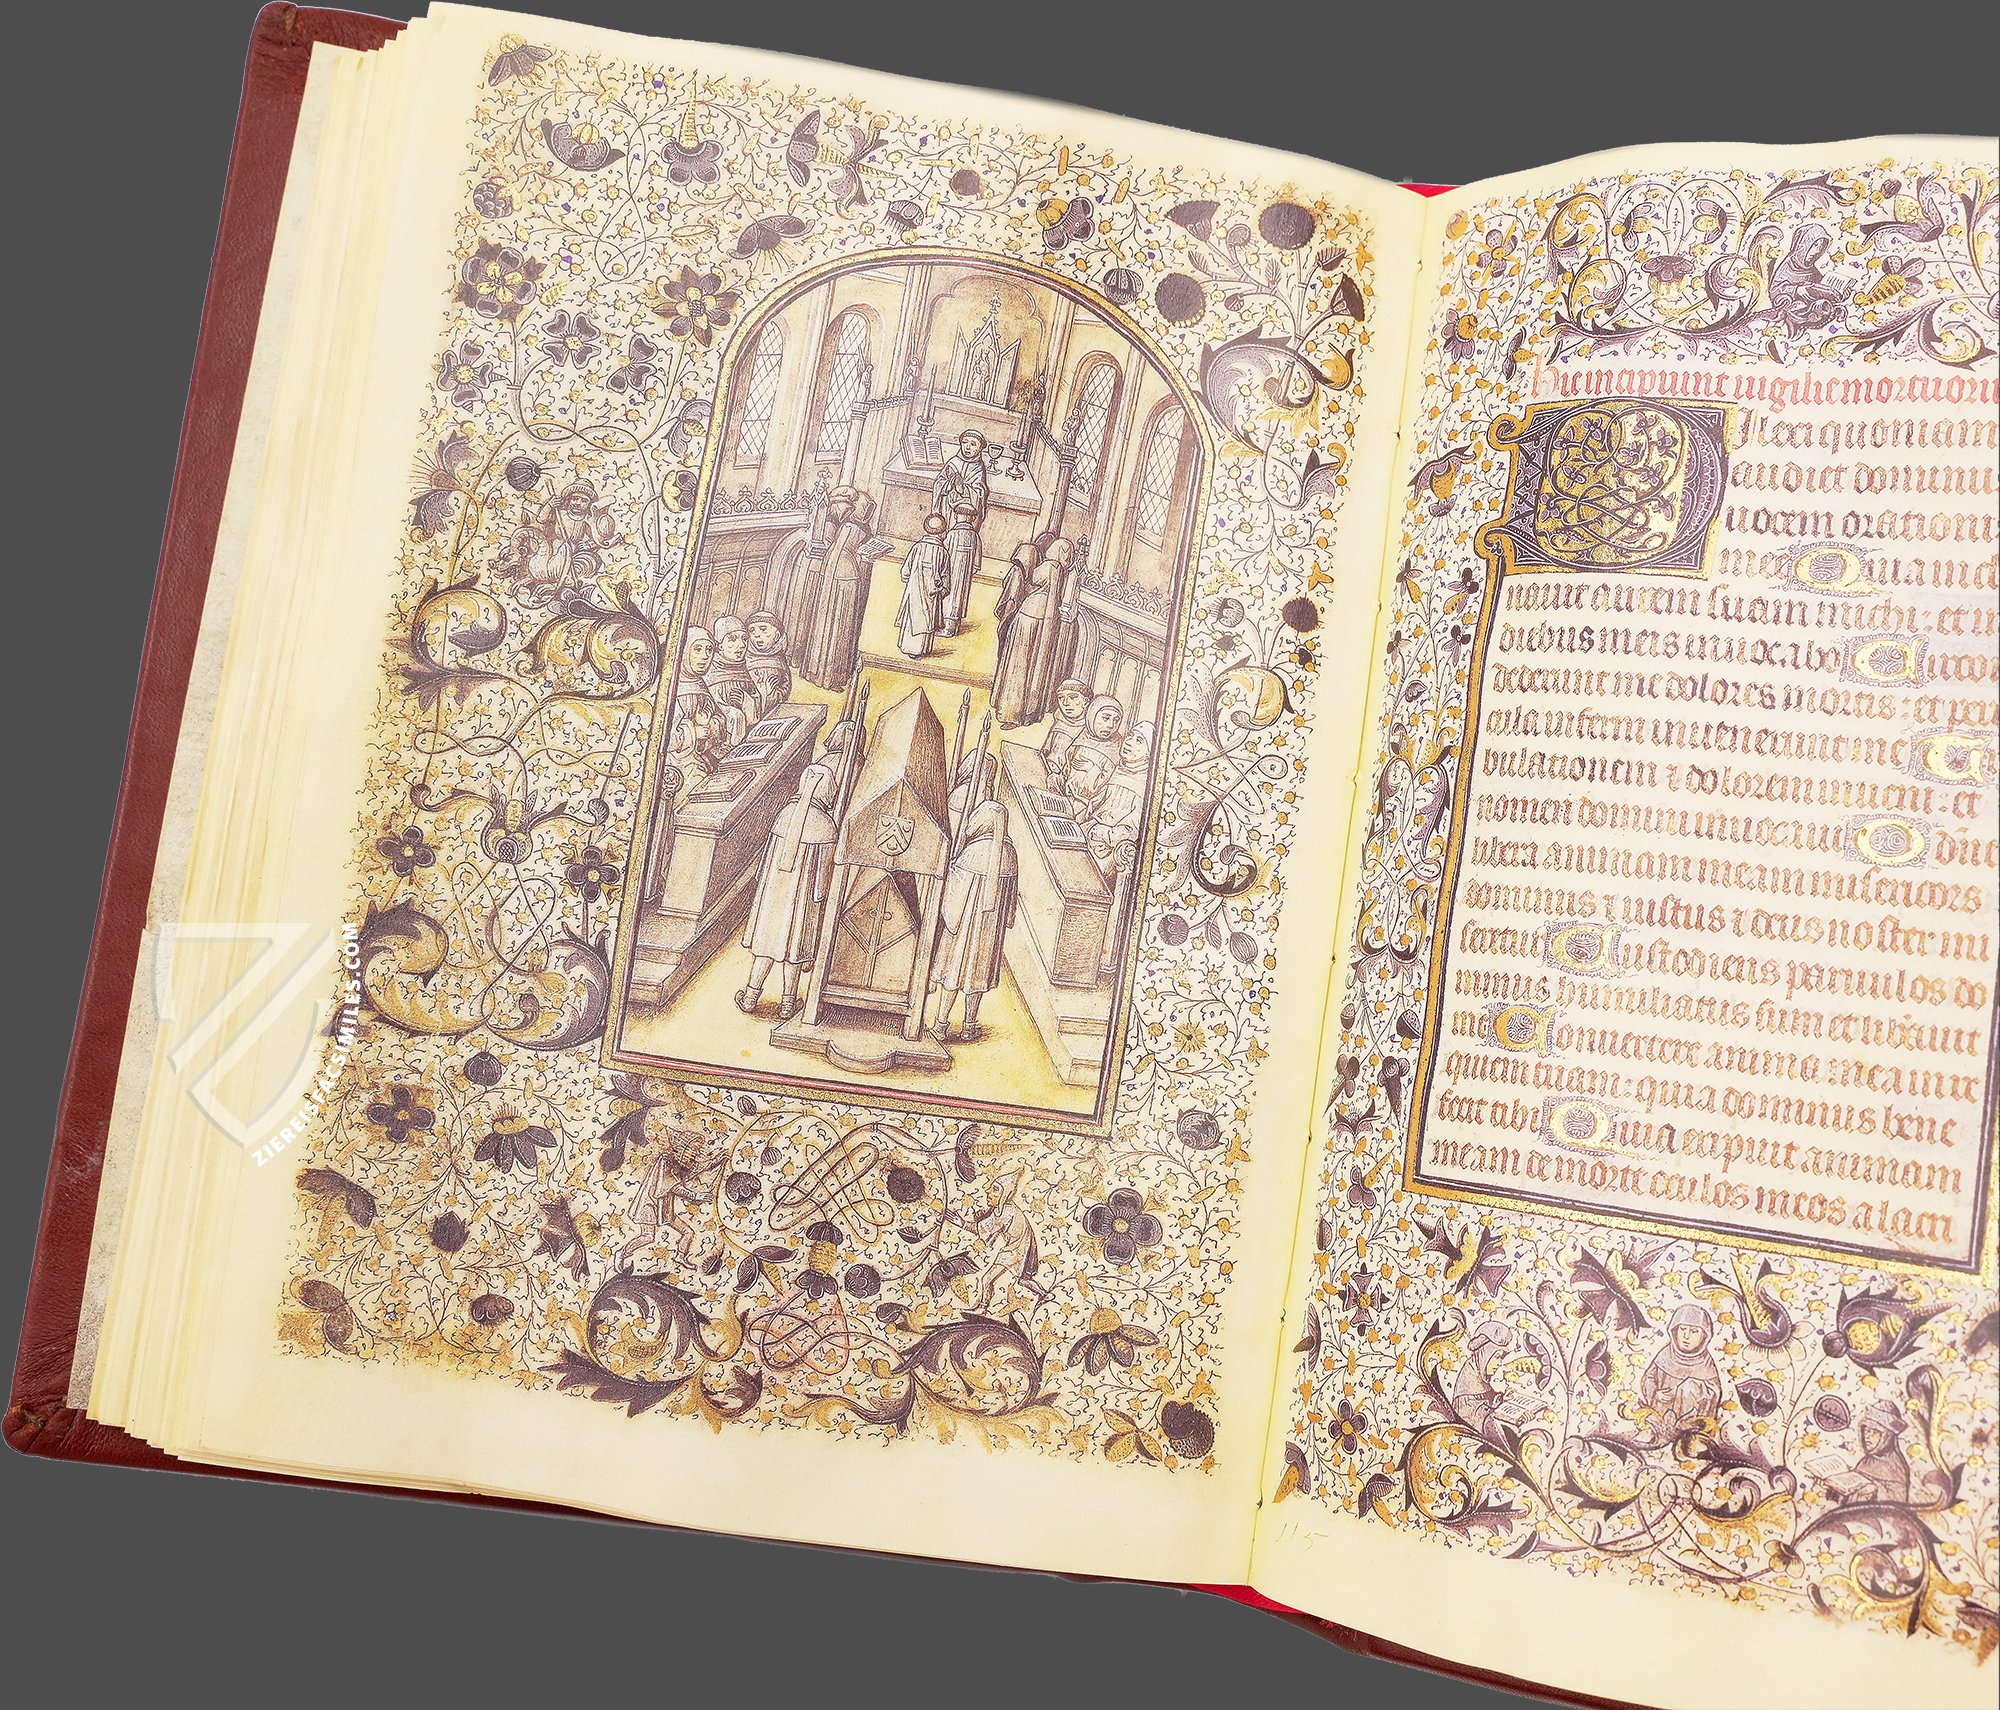 ZIEREISFACSIMILES.COM
Hic incipiunt uigilie mortuoru
Dilexi quoniam
audiet dominu
uocem orationis
mee Quia incli
nauit aurem suam michi: et in
diebus meis inuocabo Circon
dederunt me dolores mortis: et peri
cula inferni inuenerunt me
bulationem ⁊ dolorem inueni: et
nomen domini inuocaui O dñe
libera animam meam misericors
dominus ⁊ iustus ⁊ deus noster mi
seretur Custodiens paruulos do
minus humiliatus sum et liberauit
me Conuertere anima mea in re
quiem tuam: quia dominus bene
fecit tibi Quia eripuit animam
meam de morte oculos meos a lacri
115